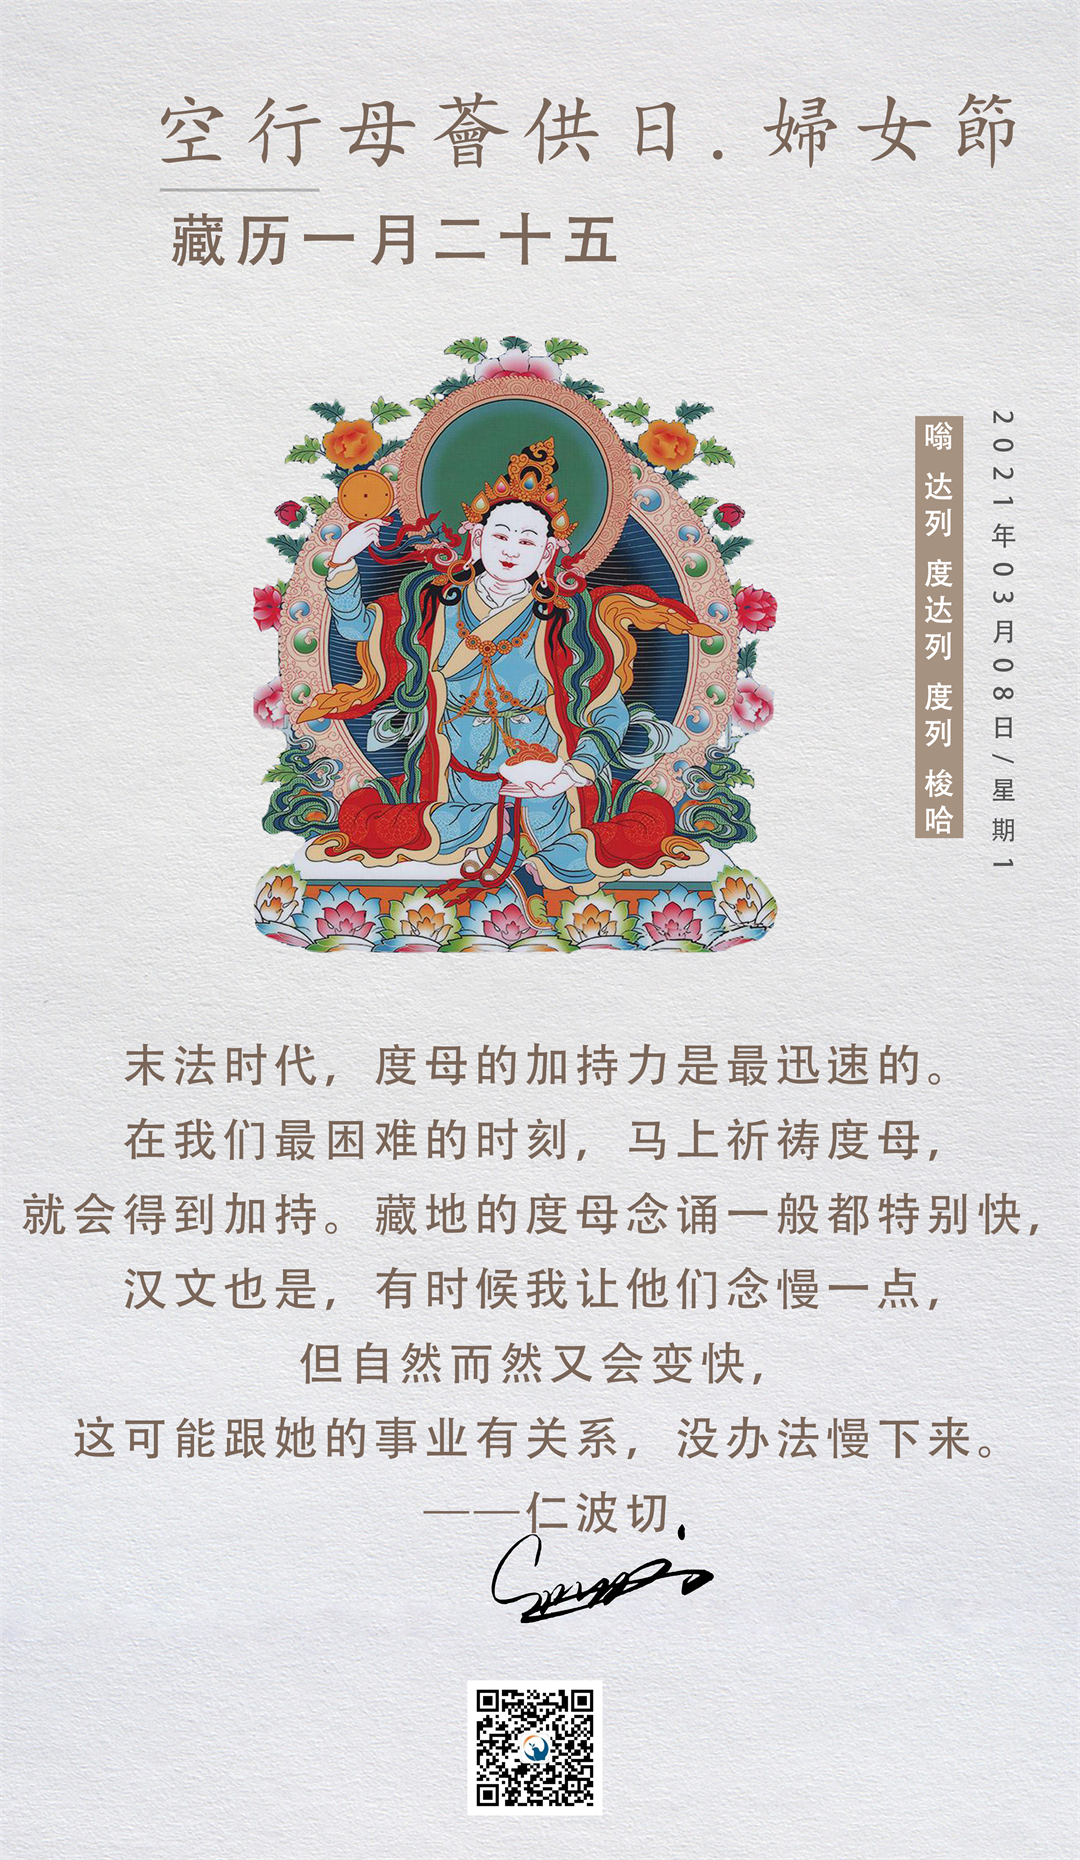 空行母薈供日.婦女節
藏历一月二十五
2021年03月08日/星期1
嗡 达列 度达列 度列 梭哈
末法时代，度母的加持力是最迅速的。
在我们最困难的时刻，马上祈祷度母，
就会得到加持。藏地的度母念诵一般都特别快，
汉文也是，有时候我让他们念慢一点，
但自然而然又会变快，
这可能跟她的事业有关系，没办法慢下来。
——仁波切